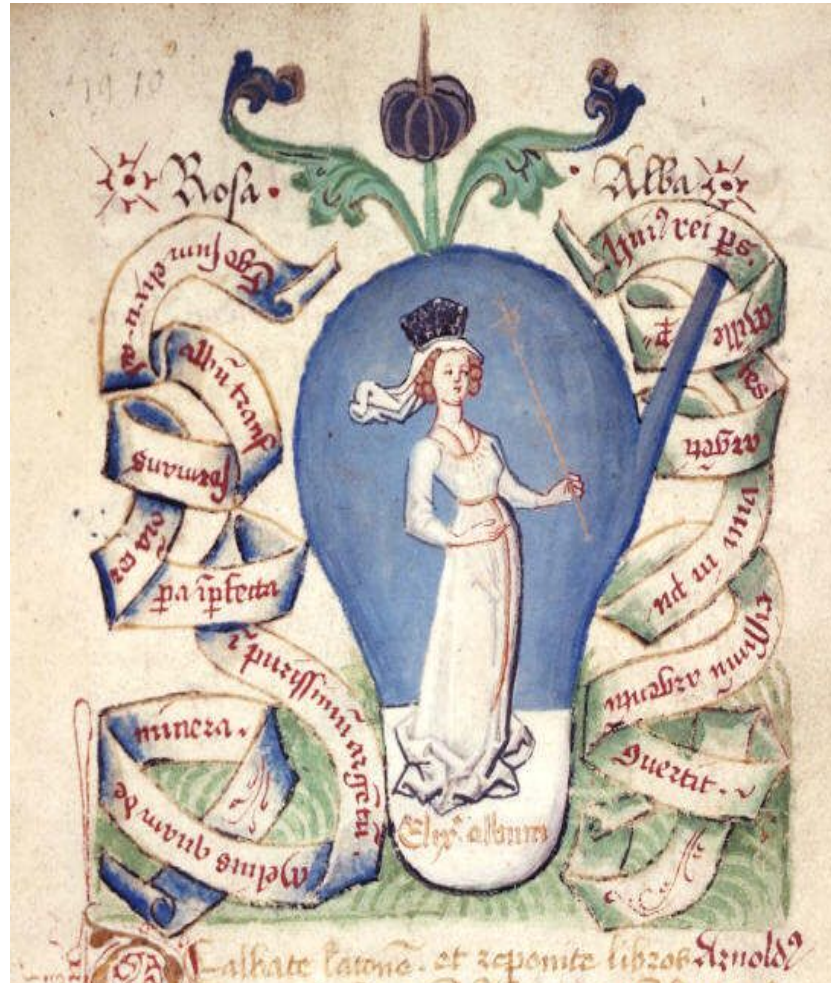 Rosa. Alba
Ego sum elixir ad
albū transf
formans
oīa cor
pa īpfecta
ī purissimū argētū.
Melius quam de
minera.
huiꝰ rei ps.
mille
argēti
vivi in pu
rissimū argentū
Elixr album
albate latonē. et reponite libros Arnoldꝰ